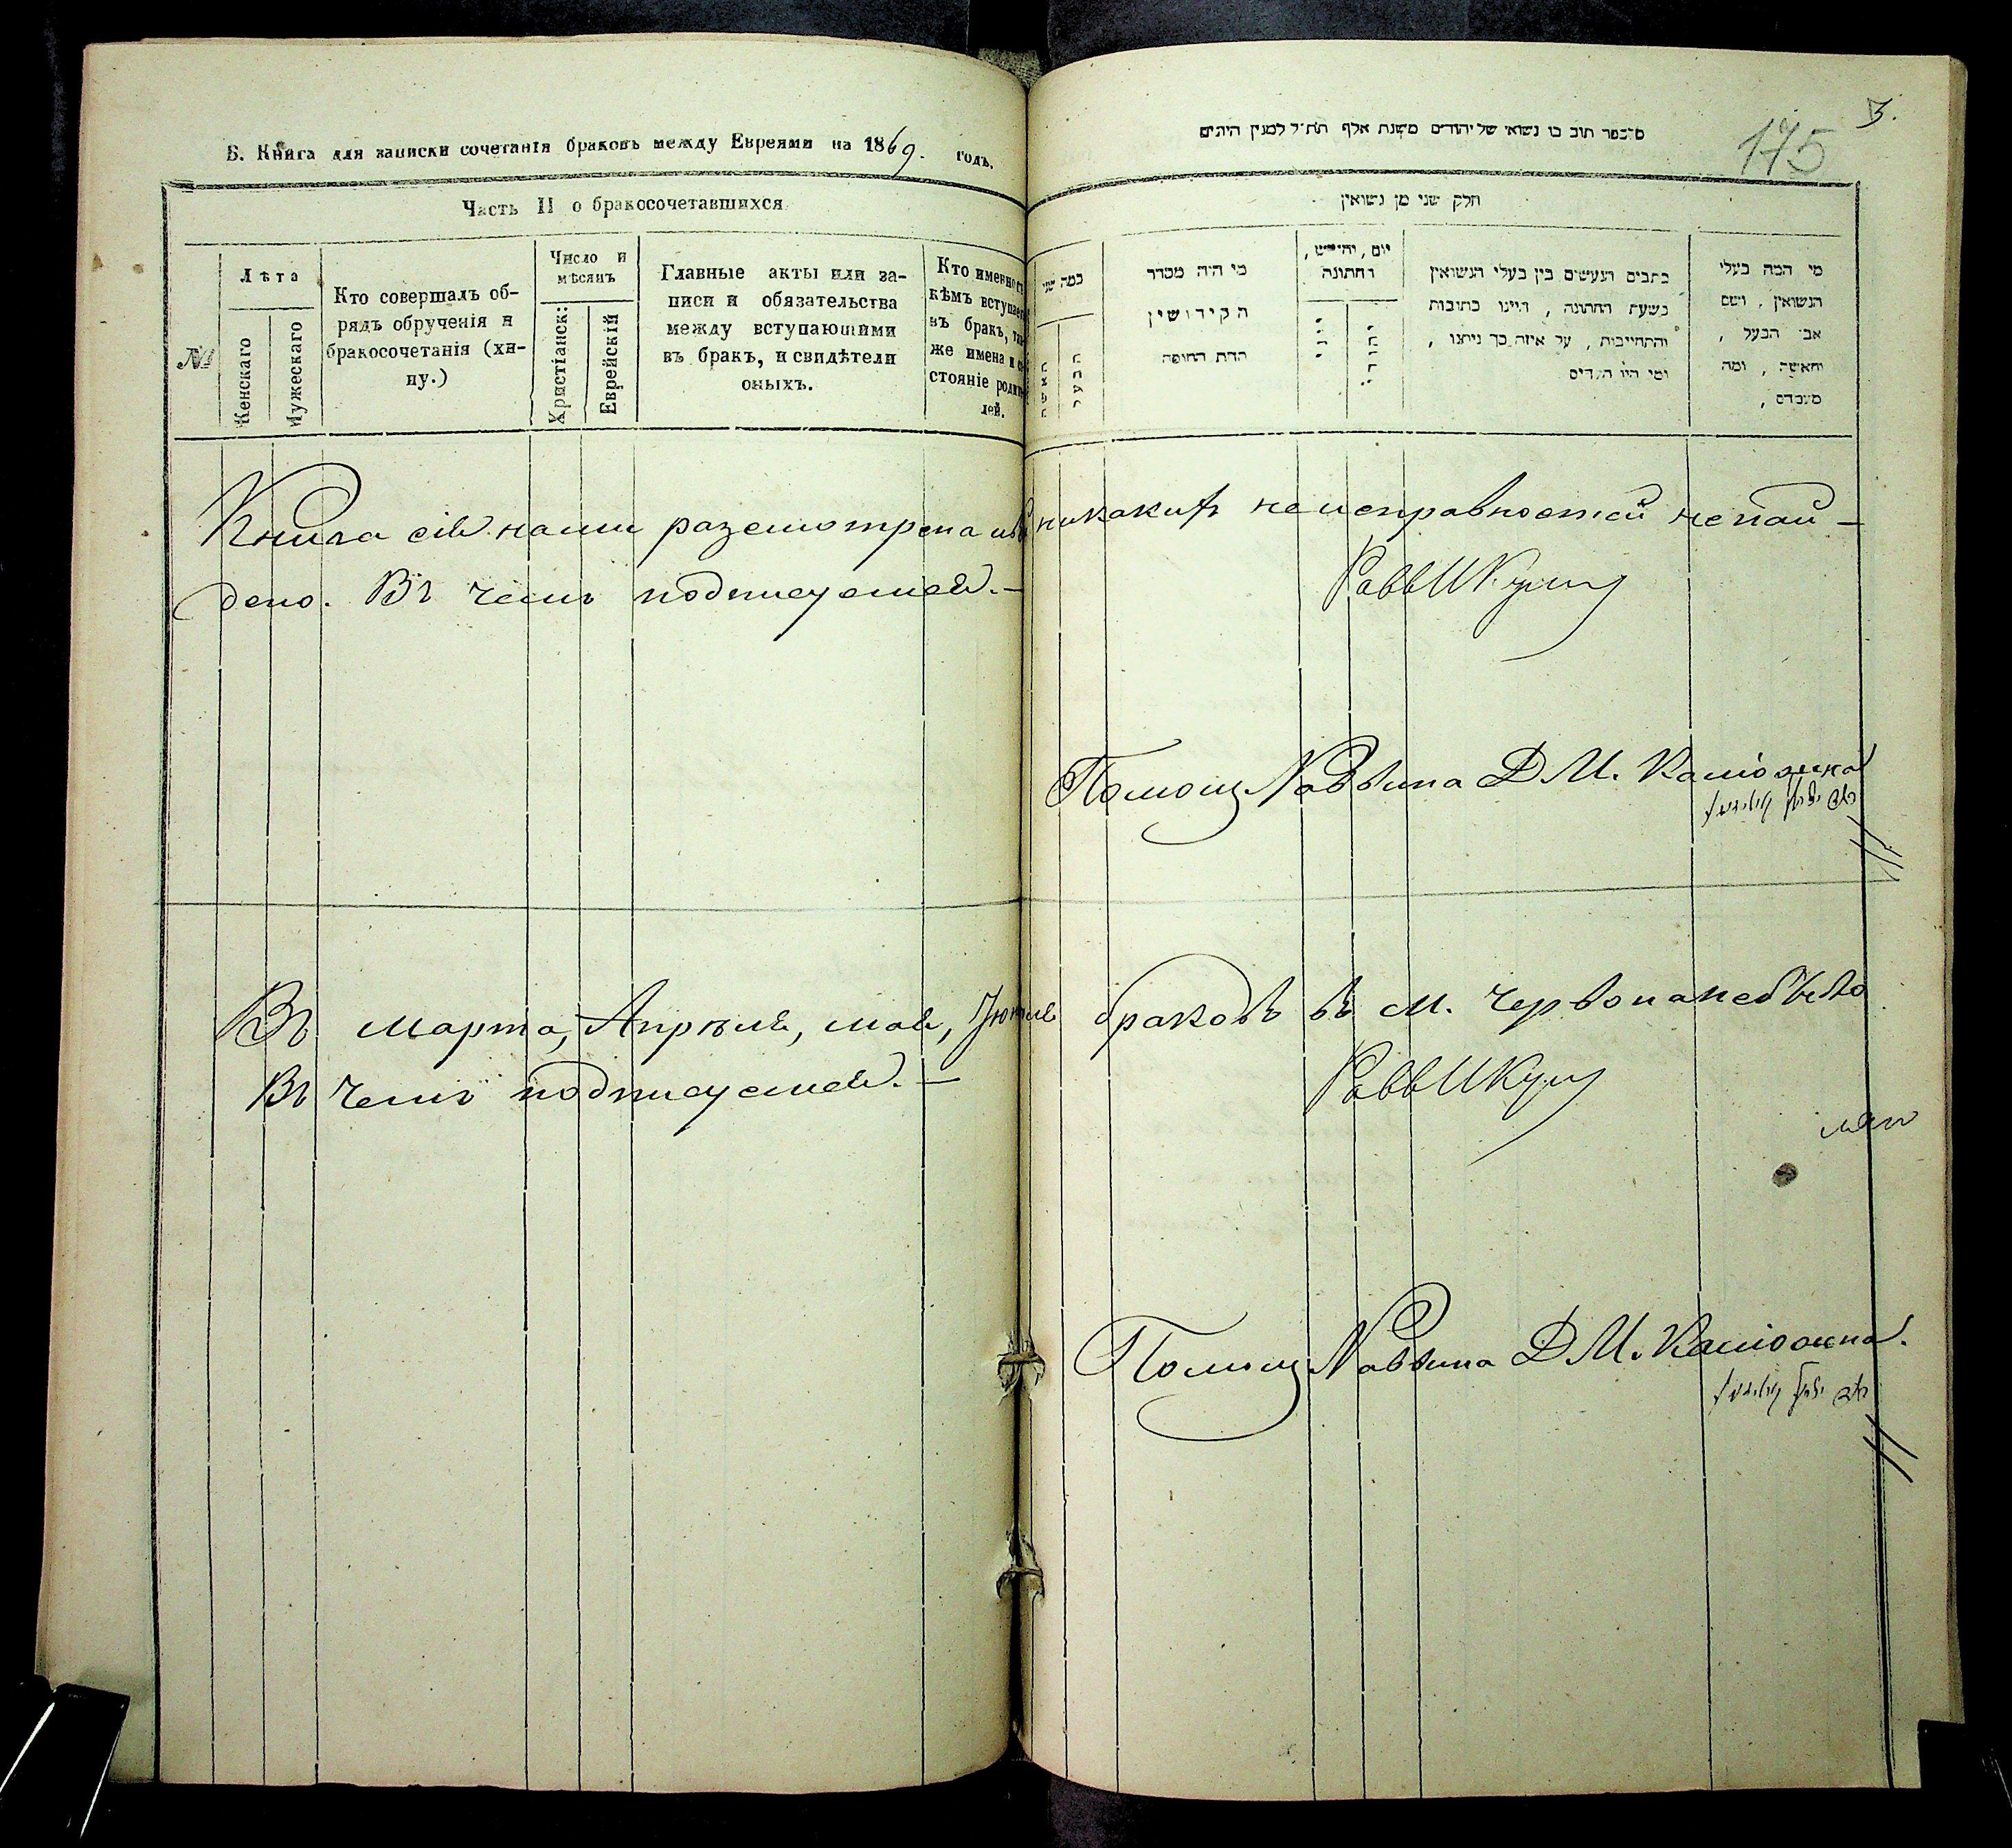 Б. Книга для записки сочетанія браковъ между Евреями на 1869. годъ.
Часть II о бракосочетавшихся
№
Лѣта
Женскаго
Мужескаго
Кто совершалъ об-
рядъ обрученія и
бракосочетанія (хи-
пу.)
Число и
мѣсяцъ
Христіанск:
Еврейскій
Главные акты или за-
писи и обязательства
между вступающими
въ бракъ, и свидѣтели
оныхъ.
Кто именно съ
кѣмъ вступаетъ
въ бракъ, так-
же имена и со-
стояніе родите-
лей.
3.
175
ספר תוב בו נשואי של יהודים משנת אלף תת״ל למנין היונים
חלק שני מן נשואין
כמה שני
האשה
הבעל
מי היה מסדר
הקידושין
הדת החופה
יום, וחודש,
החתונה
יוני
יהודי
כתבים הנעשים בין בעלי הנשואין
בשעת החתונה, היינו כתובות
והתחייבות, על איזה סך ניתנו,
ומי היו העדים
מי המה בעלי
הנשואין, ושם
אבי הבעל,
והאשה, ומה
מעמדם,
Книга сія нами разсмотрена и никакихъ неисправностей не най-
дено. Въ чемъ подписуемся.—
Равв
Помощ Раввина Д М.
Въ марта, Апрѣля, мая, Іюня браковъ въ м. Червона небыло
Въ чемъ подписуемся.—
Равв
Помощ Раввина Д М.